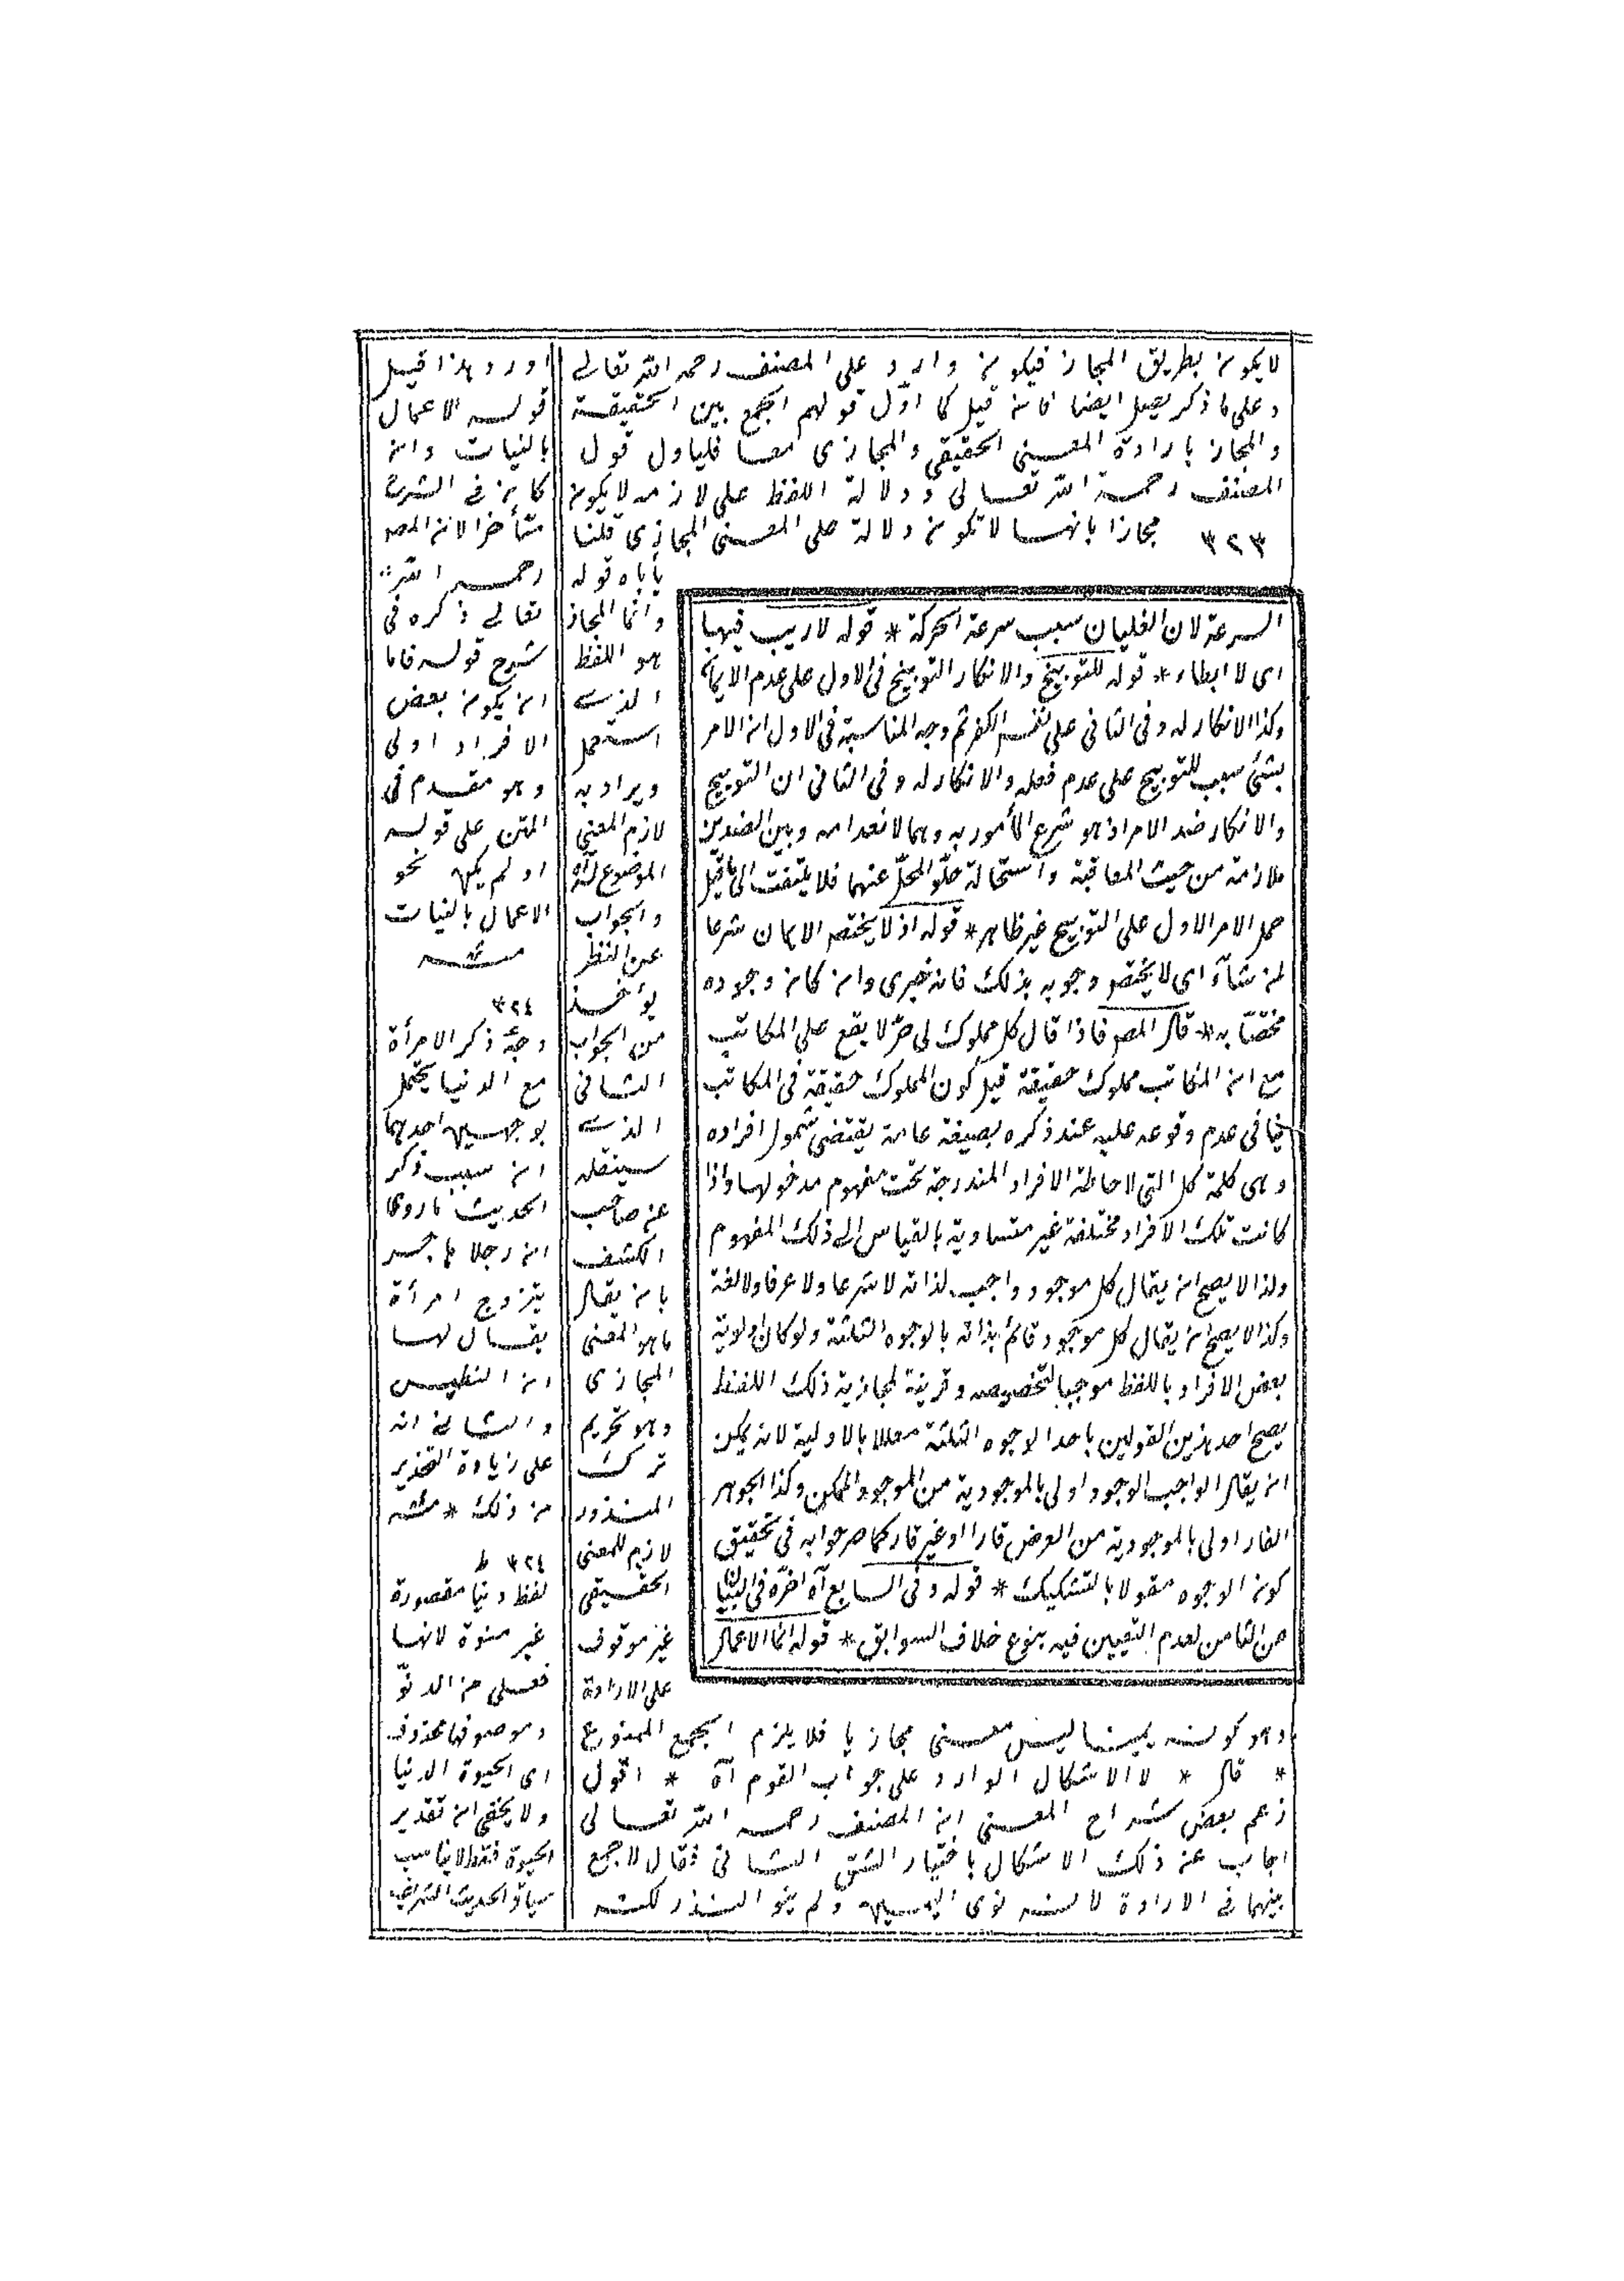 لا يكون بطريق المجاز فيكون وارد على المصنف رحمه الله تعالى
وعلى ما ذكر يصل ايضا فان قيل كما اوّل قولهم الجمع بين الحقيقة
والمجاز بارادة المعنى الحقيقى والمجازى معا فليأول قول
المصنف رحمة الله تعالى ودلالة اللفظ على لازمه لا يكون
٣٢٣ مجازا بانها لا تكون دلالة على المعنى المجازى قلنا
يأباه قوله
وانما المجاز
هو اللفظ
الذى
استعمل
ويراد به
لازم المعنى
الموضوع له
والجواب
عن النظر
يؤخذ
من الجواب
الثانى
الذى
سينقله
عن صاحب
الكشف
بان يقال
ما هو المعنى
المجازى
وهو تحريم
ترك
المنذور
لازم للمعنى
الحقيقى
غير موقوف
على الارادة
وهو كونه يمينا ليس معنى مجازيا فلا يلزم الجمع الممنوع
* قال * لا الاشكال الوارد على جواب القوم آه * اقول
زعم بعض شراح المعنى ان المصنف رحمه الله تعالى
اجاب عن ذلك الاشكال باختيار الشق الثانى فقال لا جمع
بينهما فى الارادة لانه نوى اليمين ولم ينو النذر لكنه
السرعة لان الغليان سبب سرعة الحركة * قوله لا ريب فيها
اى لا ابطاء * قوله للتوبيخ والانكار التوبيخ فى الاول على عدم الايمان
وكذا الانكار له وفى الثانى على نفس الكفر ثم وجه المناسبة فى الاول ان الامر
بشئ سبب للتوبيخ على عدم فعله والانكار له وفى الثانى ان التوبيخ
والانكار ضد الامر اذ هو شرع المأمور به وهما لانعدامه وبين الضدين
ملازمة من حيث المعاقبة واستحالة خلوّ المحلّ عنهما فلا يلتفت الى ما قيل
حمل الامر الاول على التوبيخ غير ظاهر * قوله اذ لا يختص الايمان شرعا
لمن شآء اى لا يختص وجوبه بذلك فانه خبرى وان كان وجوده
مختصّا به * قال المص فاذا قال كل مملوك لى حرّ لا يقع على المكاتب
مع ان المكاتب مملوك حقيقة قيل كون المملوك حقيقة فى المكاتب
ينافى عدم وقوعه عليه عند ذكره بصيغة عامة يقتضى شمول افراده
وهى كلمة كل التى لاحاطة الافراد المندرجة تحت مفهوم مدخولها واذا
كانت تلك الافراد مختلفة غير متساوية بالقياس الى ذلك المفهوم
ولذا لا يصح ان يقال كل موجود واجب لذاته لا شرعا ولا عرفا ولا لغة
وكذا لا يصح ان يقال كل موجود قائم بذاته بالوجوه الثلثة ولو كان اولوية
بعض الافراد باللفظ موجبا لتخصيصه وقرينة لمجازية ذلك اللفظ
يصح احد هذين القولين باحد الوجوه الثلثة معللا بالاولية لانه يمكن
ان يقال الواجب الوجود اولى بالموجودية من الموجود الممكن وكذا الجوهر
القار اولى بالموجودية من العرض قارا او غير قار كما صرحوا به فى تحقيق
كون الوجوه مقولا بالتشكيك * قوله وفى السابع آه اخرّه فى البيان
من الثامن لعدم التعيين فيه بنوع خلاف السوابق * قوله انما الاعمال
اورد هذا قبيل
قوله الاعمال
بالنيات وان
كان فى الشرح
متأخرا لان المص
رحمه الله
تعالى ذكره فى
شرح قوله فاما
ان يكون بعض
الافراد اولى
وهو مقدم فى
المتن على قوله
او لم يكن نحو
الاعمال بالنيات
منه
٣٢٤
وجه ذكر الامرأة
مع الدنيا يحتمل
بوجهين احدهما
ان سبب ذكر
الحديث ما روى
ان رجلا هاجر
يتزوج امرأة
يقال لها
والثانى انه
على زيادة التحذير
من ذلك * منه
٣٢٤ ط
لفظ دنيا مقصورة
غير منونة لانها
فعلى من الدنوّ
وموصوفها محذوف
اى الحيوة الدنيا
ولا يخفى ان تقدير
الحيوة فقط لا يناسب
سياق الحديث الشريف